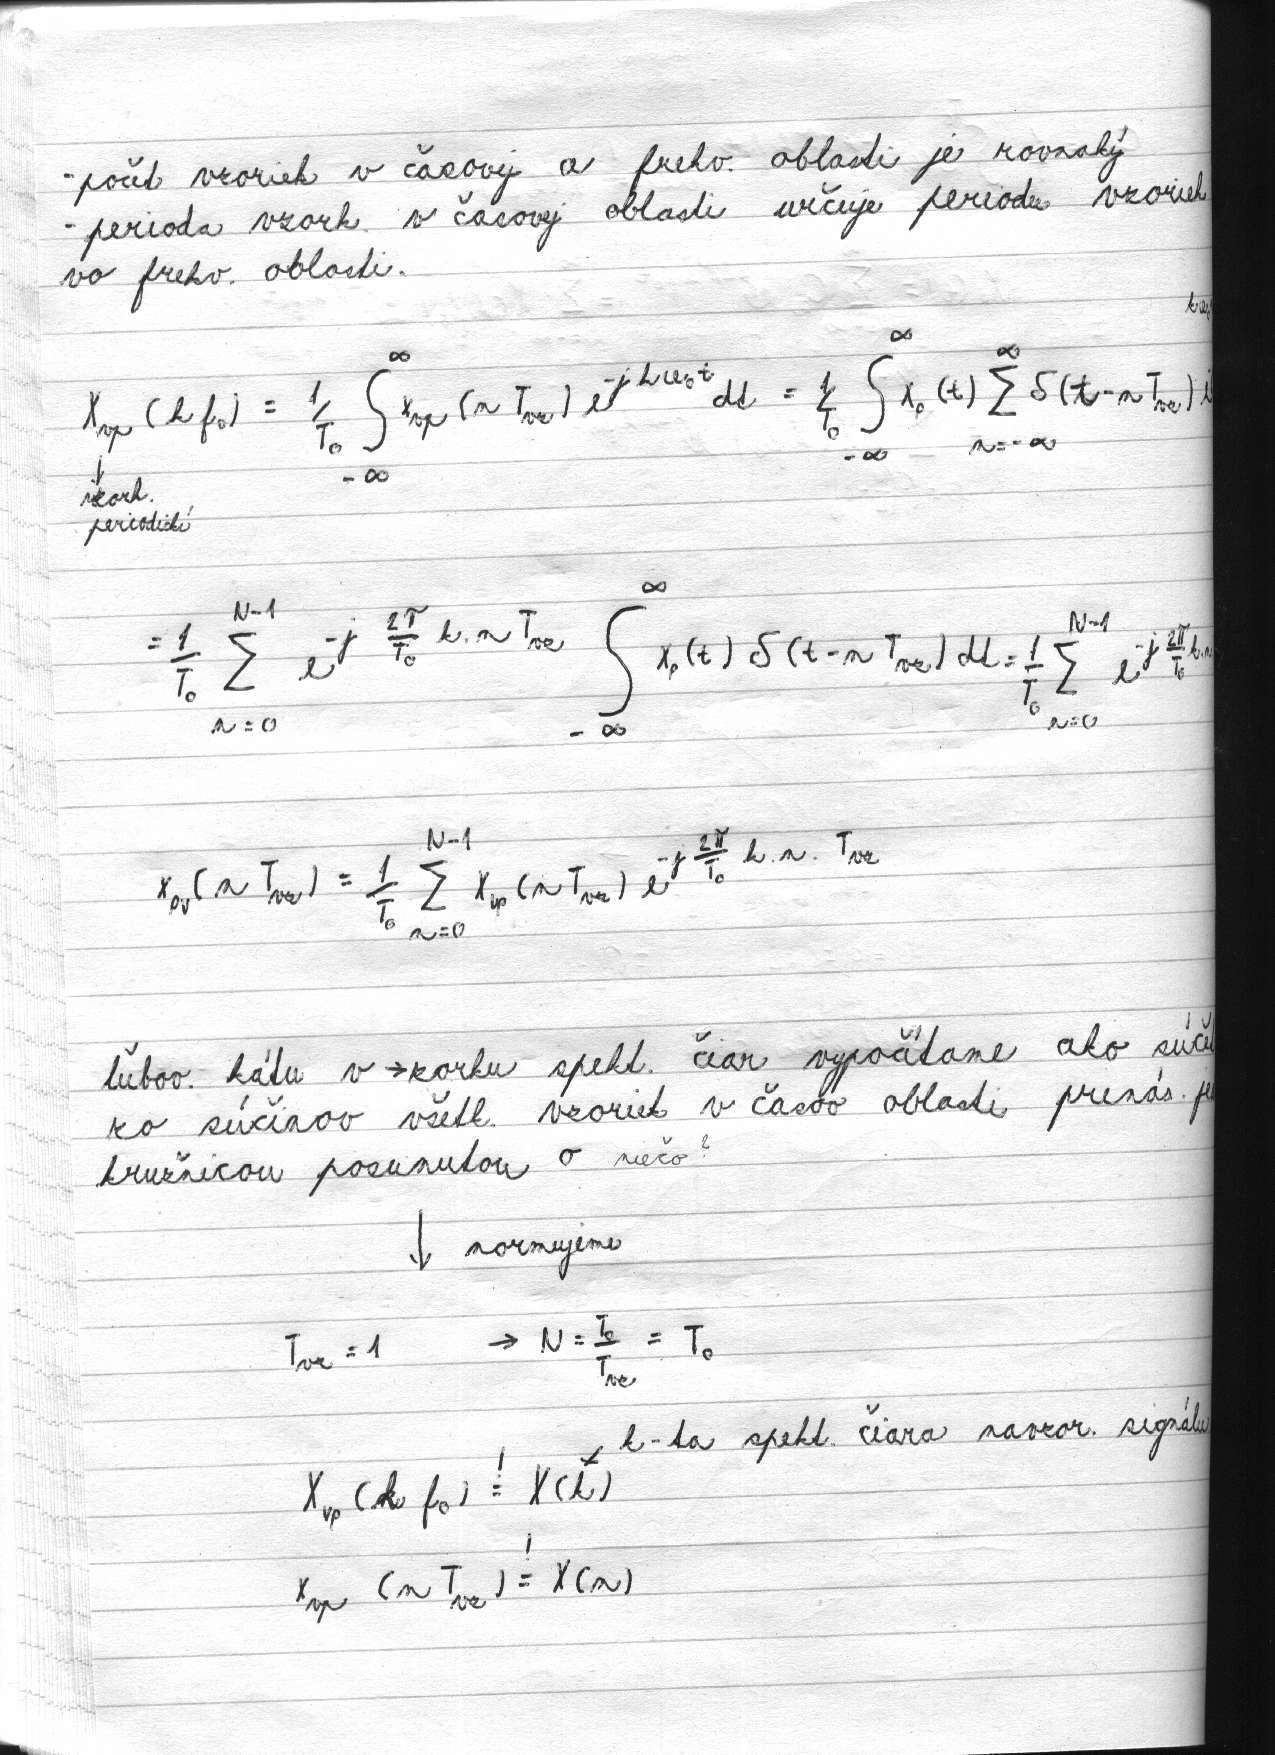 -počet vzoriek v časovej a frekv. oblasti je rovnaký
-perioda vzork. v časovej oblasti určuje periodu vzoriek
vo frekv. oblasti.
X_vp (k f_0) = 1/T_0 ∫_{-∞}^{∞} x_vp (n T_vz) e^{-j k ω_0 t} dt = 1/T_0 ∫_{-∞}^{∞} x_p (t) ∑_{n=-∞}^{∞} δ(t-n T_vz)
↓
vzork.
periodické
= 1/T_0 ∑_{n=0}^{N-1} e^{-j 2π/T_0 k.n T_vz} ∫_{-∞}^{∞} x_p (t) δ(t-n T_vz) dt = 1/T_0 ∑_{n=0}^{N-1} e^{-j 2π/T_0 k.n
x_pv (n T_vz) = 1/T_0 ∑_{n=0}^{N-1} x_vp (n T_vz) e^{-j 2π/T_0 k.n. T_vz}
ľubov. kátu v→zorku spekt. čiar vypočítame ako
zo súčinov všetk. vzoriek v časov oblasti prenás.
kružnicou posunutou o niečo?
↓ normujeme
T_vz = 1 → N = T_0/T_vz = T_0
k-ta spekt. čiara navzor. signálu
X_vp (k f_0) =! X(k)
x_vp (n T_vz) =! X(n)